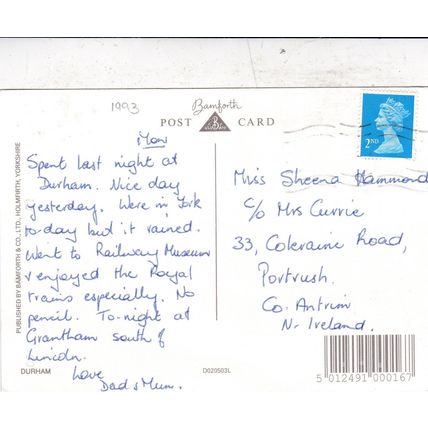 1993
Bamforth
POST CARD
2ND
Mon
Spent last night at
Durham. Nice day
yesterday. Were in York
to-day but it rained.
Went to Railway Museum
& enjoyed the Royal
trains especially. No
pencil. To-night at
Grantham south of
Lincoln.
Love
Dad & Mum.
Miss Sheena Hammond
c/o Mrs Currie
33, Coleraine Road,
Portrush.
Co. Antrim
N. Ireland.
PUBLISHED BY BAMFORTH & CO., LTD., HOLMFIRTH, YORKSHIRE
DURHAM
D020503L
5 012491 000167